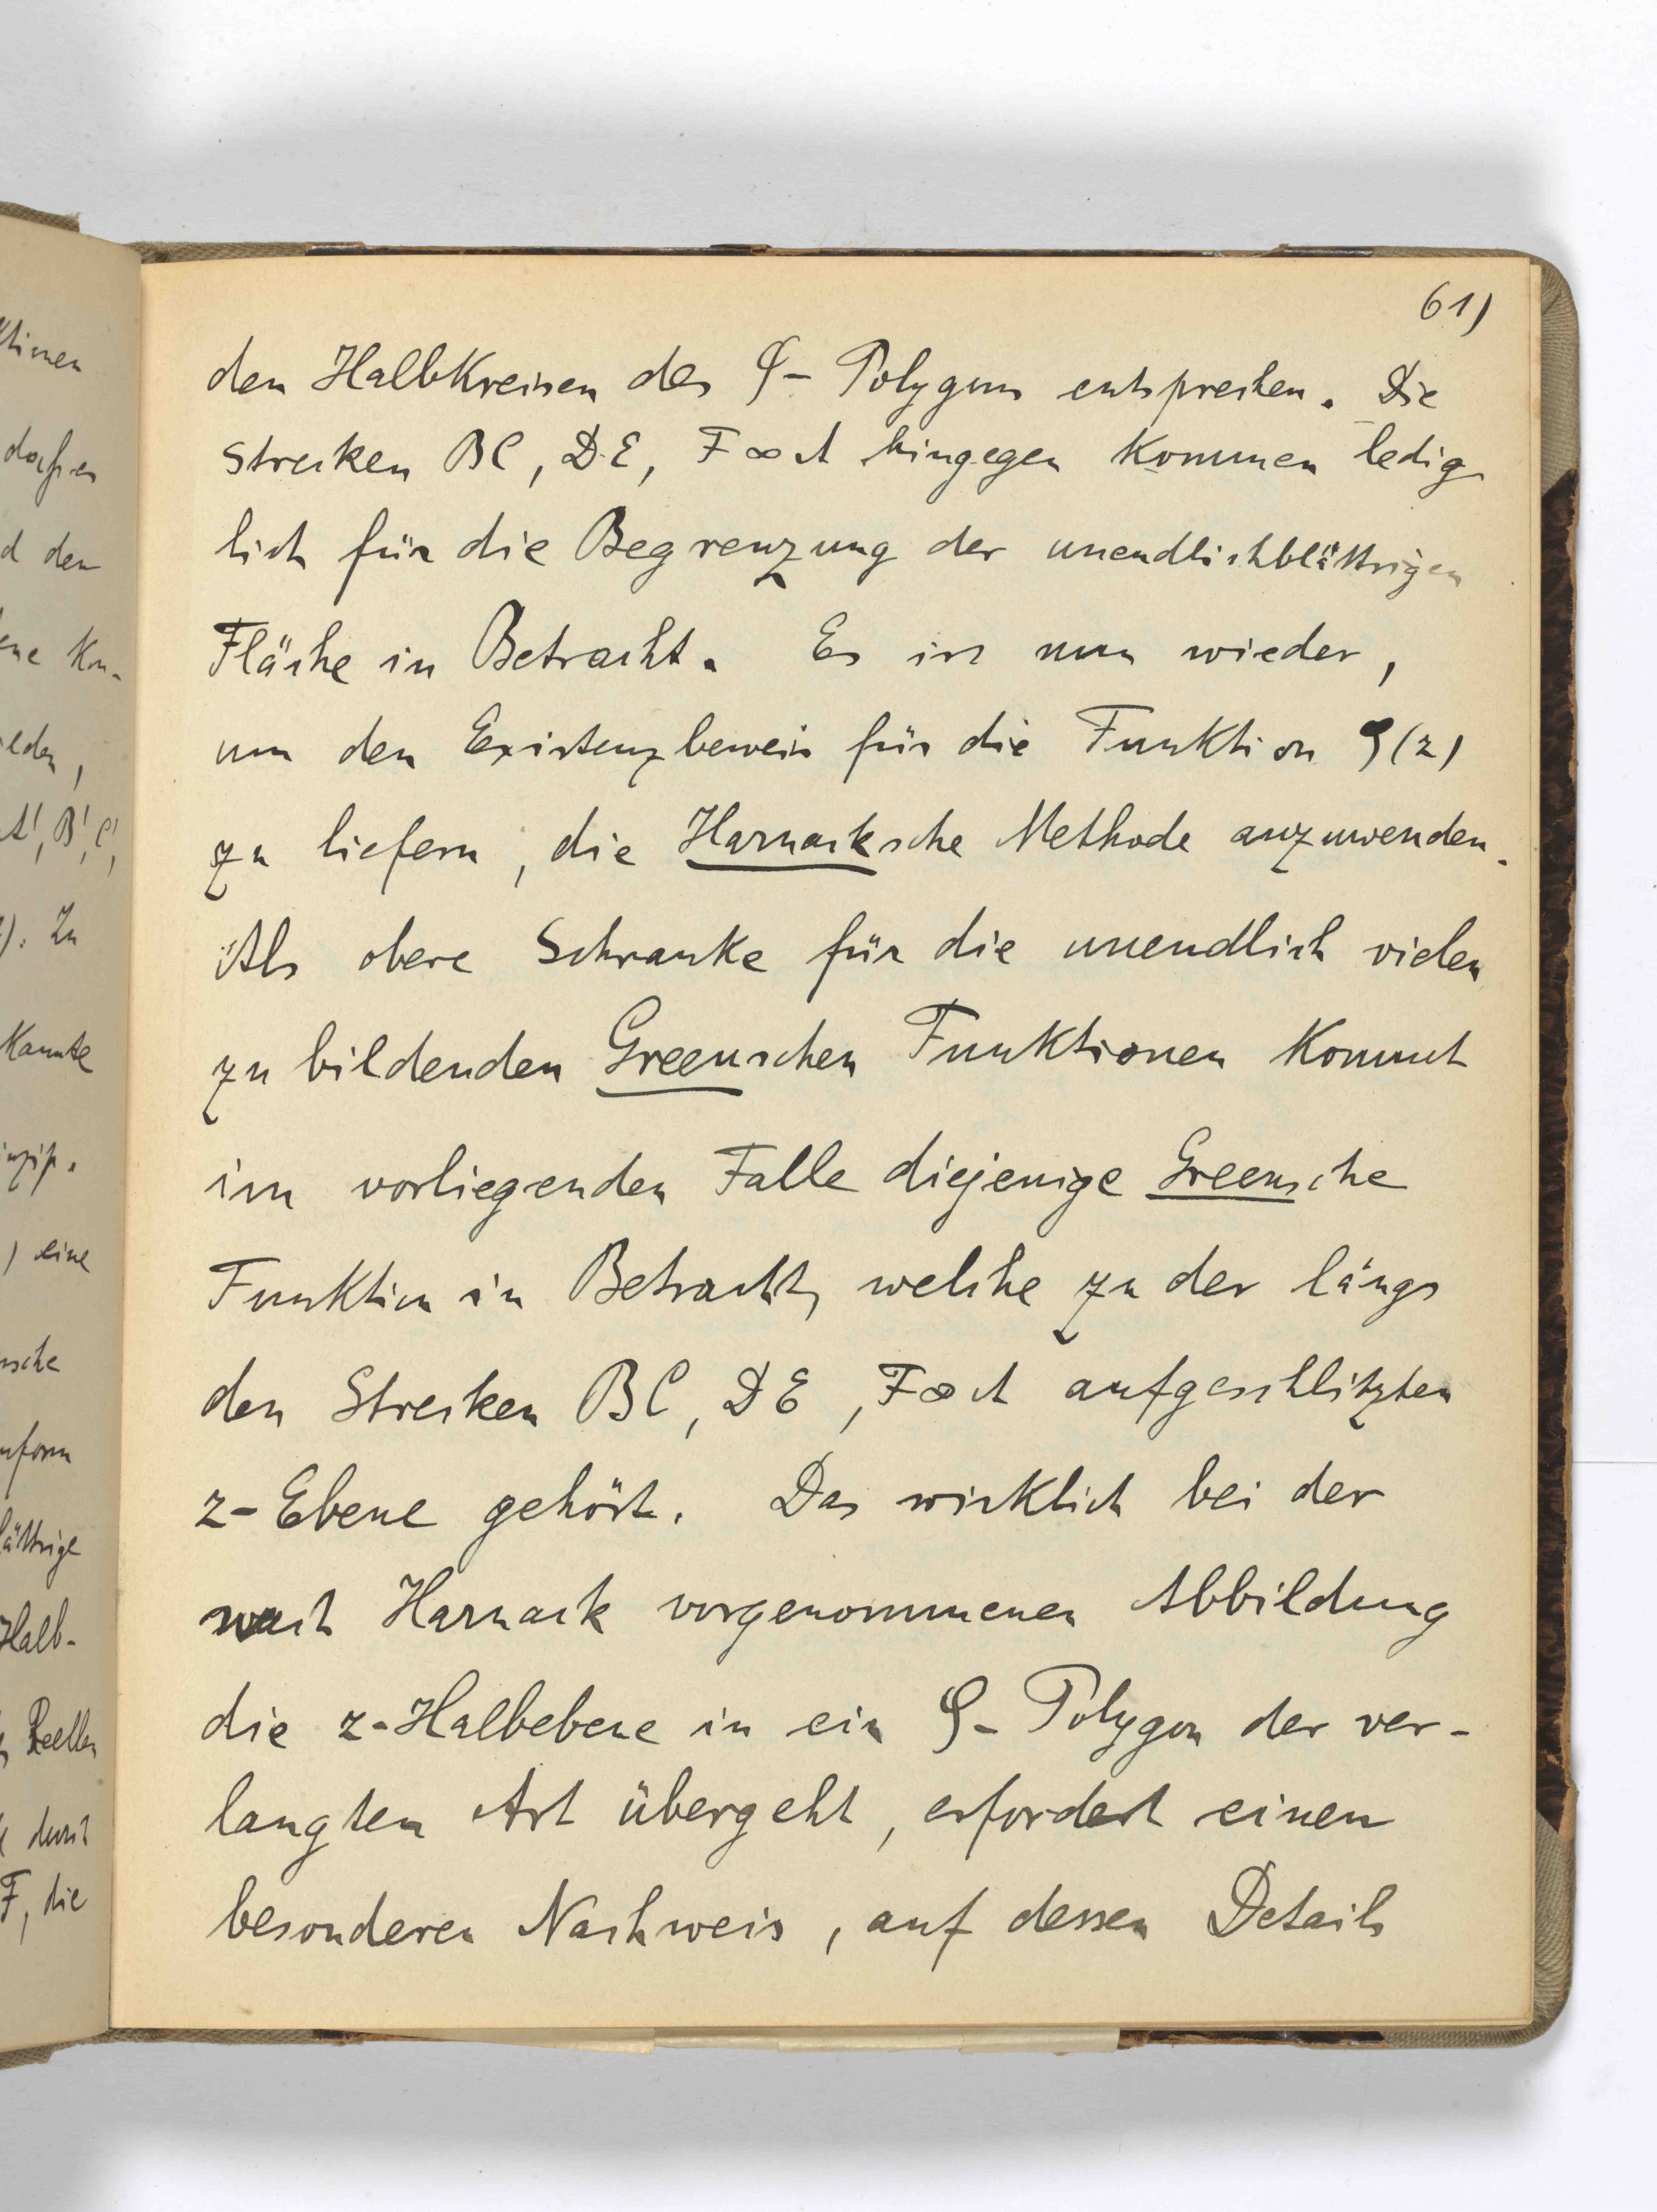 61)
den Halbkreisen des ζ- Polygons entsprechen. Die
Strecken BC, DE, F∞A hingegen kommen ledig
lich für die Begrenzung der unendlichblättrigen
Fläche in Betracht. Es ist nun wieder,
um den Existenzbeweis für die Funktion ζ(z)
zu liefern, die Harnacksche Methode anzuwenden.
Als obere Schranke für die unendlich vielen
zu bildenden Greenschen Funktionen kommt
im vorliegenden Falle diejenige Greensche
Funktion in Betracht, welche zu der längs
den Strecken BC, DE, F∞A aufgeschlitzten
z-Ebene gehört. Das wirklich bei der
nach Harnack vorgenommenen Abbildung
die z-Halbebene in ein ζ- Polygon der ver-
langten Art übergeht, erfordert einen
besonderen Nachweis, auf dessen Details
ktionen
daß es
d den
ene Kn-
ilden,
A', B', C',
z). Zu
kannte
inzip.
) eine
nsche
nform
lättrige
Halb-
Reellen
durch
F, die